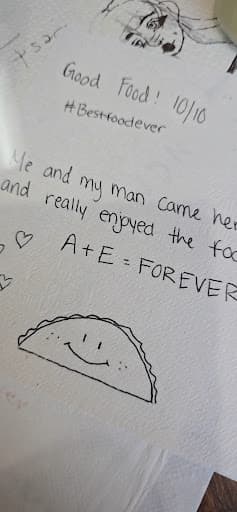 Good Food! 10/10
#Bestfoodever
Me and my man came her
and really enjoyed the foo
A+E = FOREVER